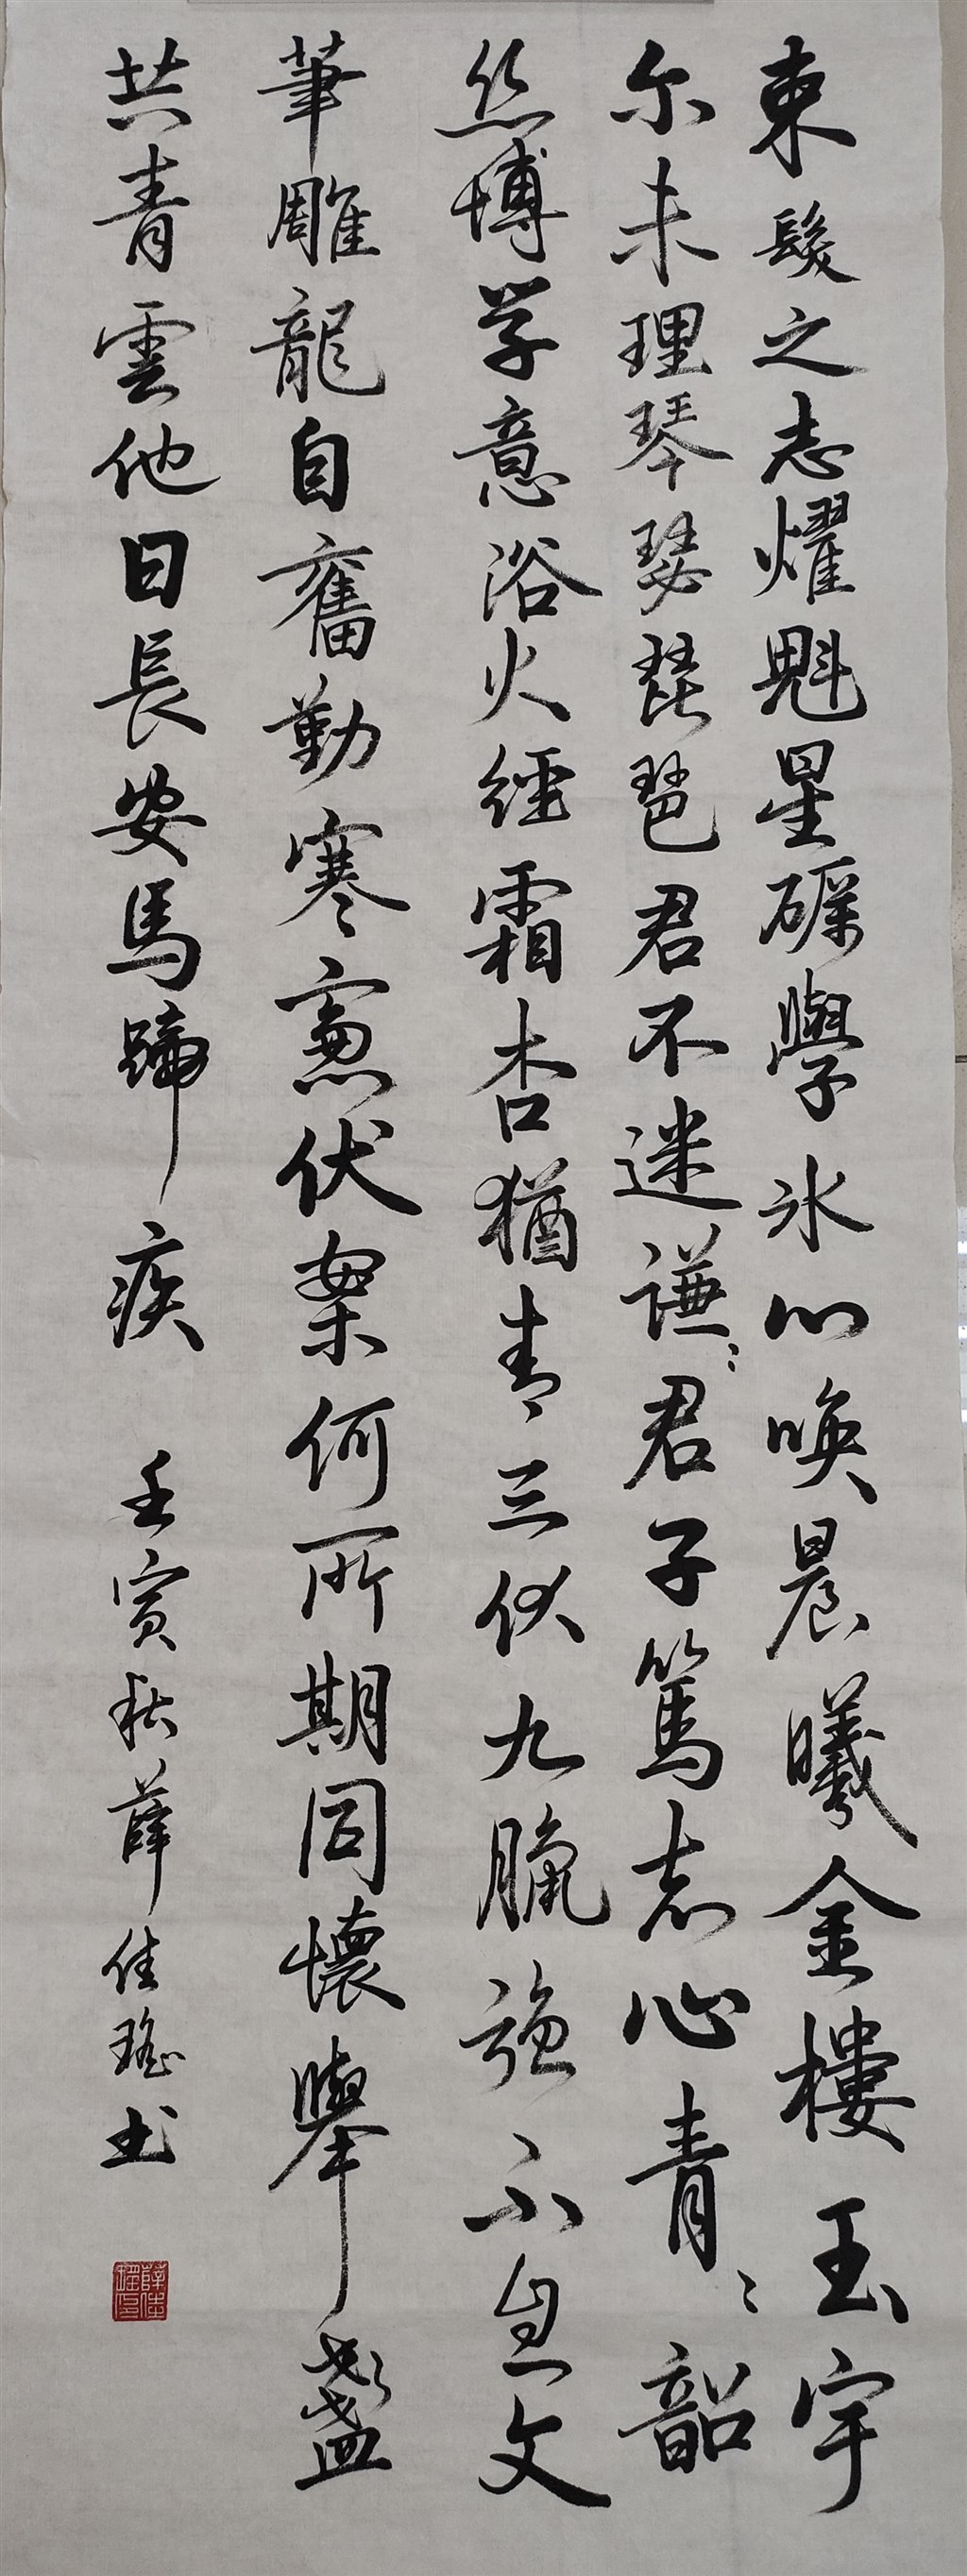 束髮之志耀魁星礪學冰心喚晨曦金樓玉宇
尔未理琴瑟琵琶君不迷謙〻君子篤志心青〻韶
丝博学意浴火經霜杏猶青三伏九臘強不息文
筆雕龍自奮勤寒窻伏案何所期同懷舉盞
共青雲他日長安馬蹄疾 壬寅秋薛佳瑤书